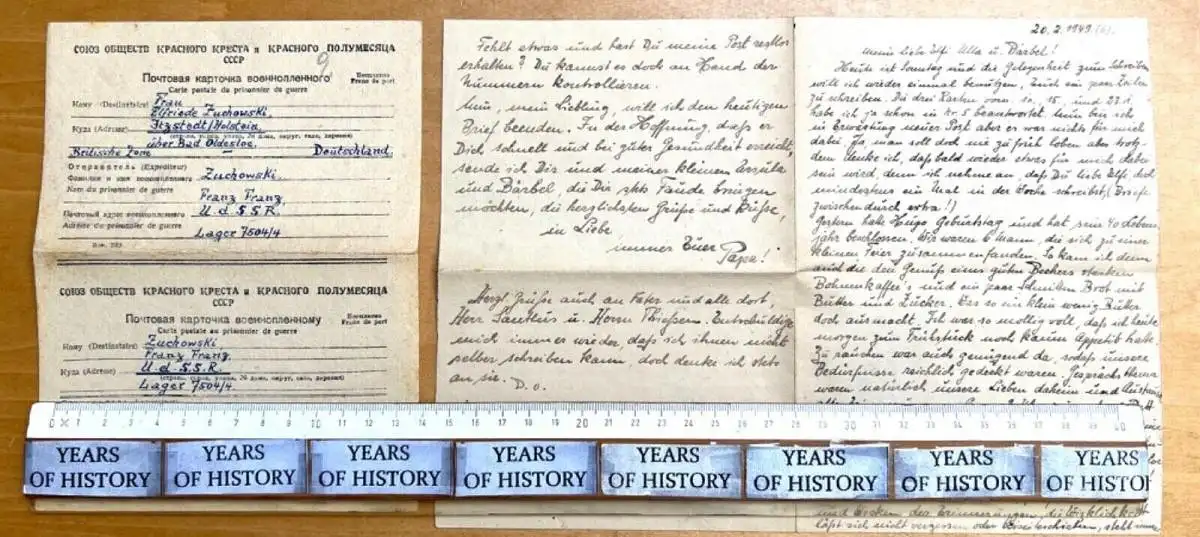 СОЮЗ ОБЩЕСТВ КРАСНОГО КРЕСТА и КРАСНОГО ПОЛУМЕСЯЦА
СССР
9
Почтовая карточка военнопленного
Бесплатно
Carte postale du prisonnier de guerre
Franc de port
Кому (Destinataire) Frau
Elfriede Zuchowski
Куда (Adresse) Itzstedt/Holstein
über Bad Oldesloe
Britische Zone - Deutschland.
Отправитель (Expediteur)
Фамилия и имя военнопленного Zuchowski.
Nom du prisonnier de guerre
Franz Franz
Почтовый адрес военнопленного U.d.S.S.R.
Adresse du prisonnier de guerre
Lager 7504/4
СОЮЗ ОБЩЕСТВ КРАСНОГО КРЕСТА и КРАСНОГО ПОЛУМЕСЯЦА
СССР
Почтовая карточка военнопленному
Бесплатно
Carte postale au prisonnier de guerre
Franc de port
Кому (Destinataire) Zuchowski
Franz Franz
Куда (Adresse) U.d.S.S.R.
Lager 7504/4
Fehlt etwas und hast Du meine Post restlos
erhalten? Du kannst es doch an Hand der
Nummern kontrollieren.
Nun, mein Liebling, will ich den heutigen
Brief beenden. In der Hoffnung, dass er
Dich schnell und bei guter Gesundheit erreicht,
sende ich Dir und meiner kleinen
und Bärbel, die Dir stets Freude bringen
möchten, die herzlichsten Grüße und Küsse,
in Liebe
immer Euer
Papa!
Herzl. Grüße auch an Vater und alle dort,
Herr u. Herrn Thießen. Entschuldige
mich immer wieder, dass ich ihnen nicht
selber schreiben kann, doch denke ich stets
an sie.
D.o.
20.2.1949 (6).
mein liebe Elfi, Ulla u. Bärbel!
Heute ist Sonntag und die Gelegenheit zum Schreiben
will ich wieder einmal benützen, Euch ein paar Zeilen
zu schreiben. Die drei Karten vom 15. und
habe ich ja schon in Nr. 5 beantwortet. Nun bin ich
in Erwartung neuer Post aber es war nichts für mich
dabei. Ja, man soll doch nie zu früh loben aber trotz-
dem denke ich, daß bald wieder etwas für mich dabei
sein wird, denn ich nehme an, daß Du liebe Elfi, doch
mindestens ein Mal in der Woche schreibst, (Briefe
zwischendurch extra!)
Gestern hatte Hugo Geburtstag und hat sein 40 Lebens-
jahr beschlossen. Wir waren 6 Mann, die sich zu einer
kleinen Feier zusammenfanden. So kam ich denn
auch in den Genuß eines guten Bechers starken
Bohnenkaffee's und ein paar Schnitten Brot mit
Butter und Zucker. Was so ein klein wenig Butter
doch ausmacht. Ich war so voll, daß ich heute
morgen zum Frühstück noch kaum Appetit hatte.
Zu rauchen war auch genügend da, sodaß unsere
Bedürfnisse reichlich gedeckt waren. Gespräch
waren natürlich unsere Lieben daheim und
der Erinnerungen, die Wirklichkeit
läßt sich nicht vergessen oder
0 1 2 3 4 5 6 7 8 9 10 11 12 13 14 15 16 17 18 19 20 21 22 23 24 25 26 27 28 29 30 31 32 33 34 35 36 37 38 39 40
YEARS OF HISTORY
YEARS OF HISTORY
YEARS OF HISTORY
YEARS OF HISTORY
YEARS OF HISTORY
YEARS OF HISTORY
YEARS OF HISTORY
YEARS OF HISTO